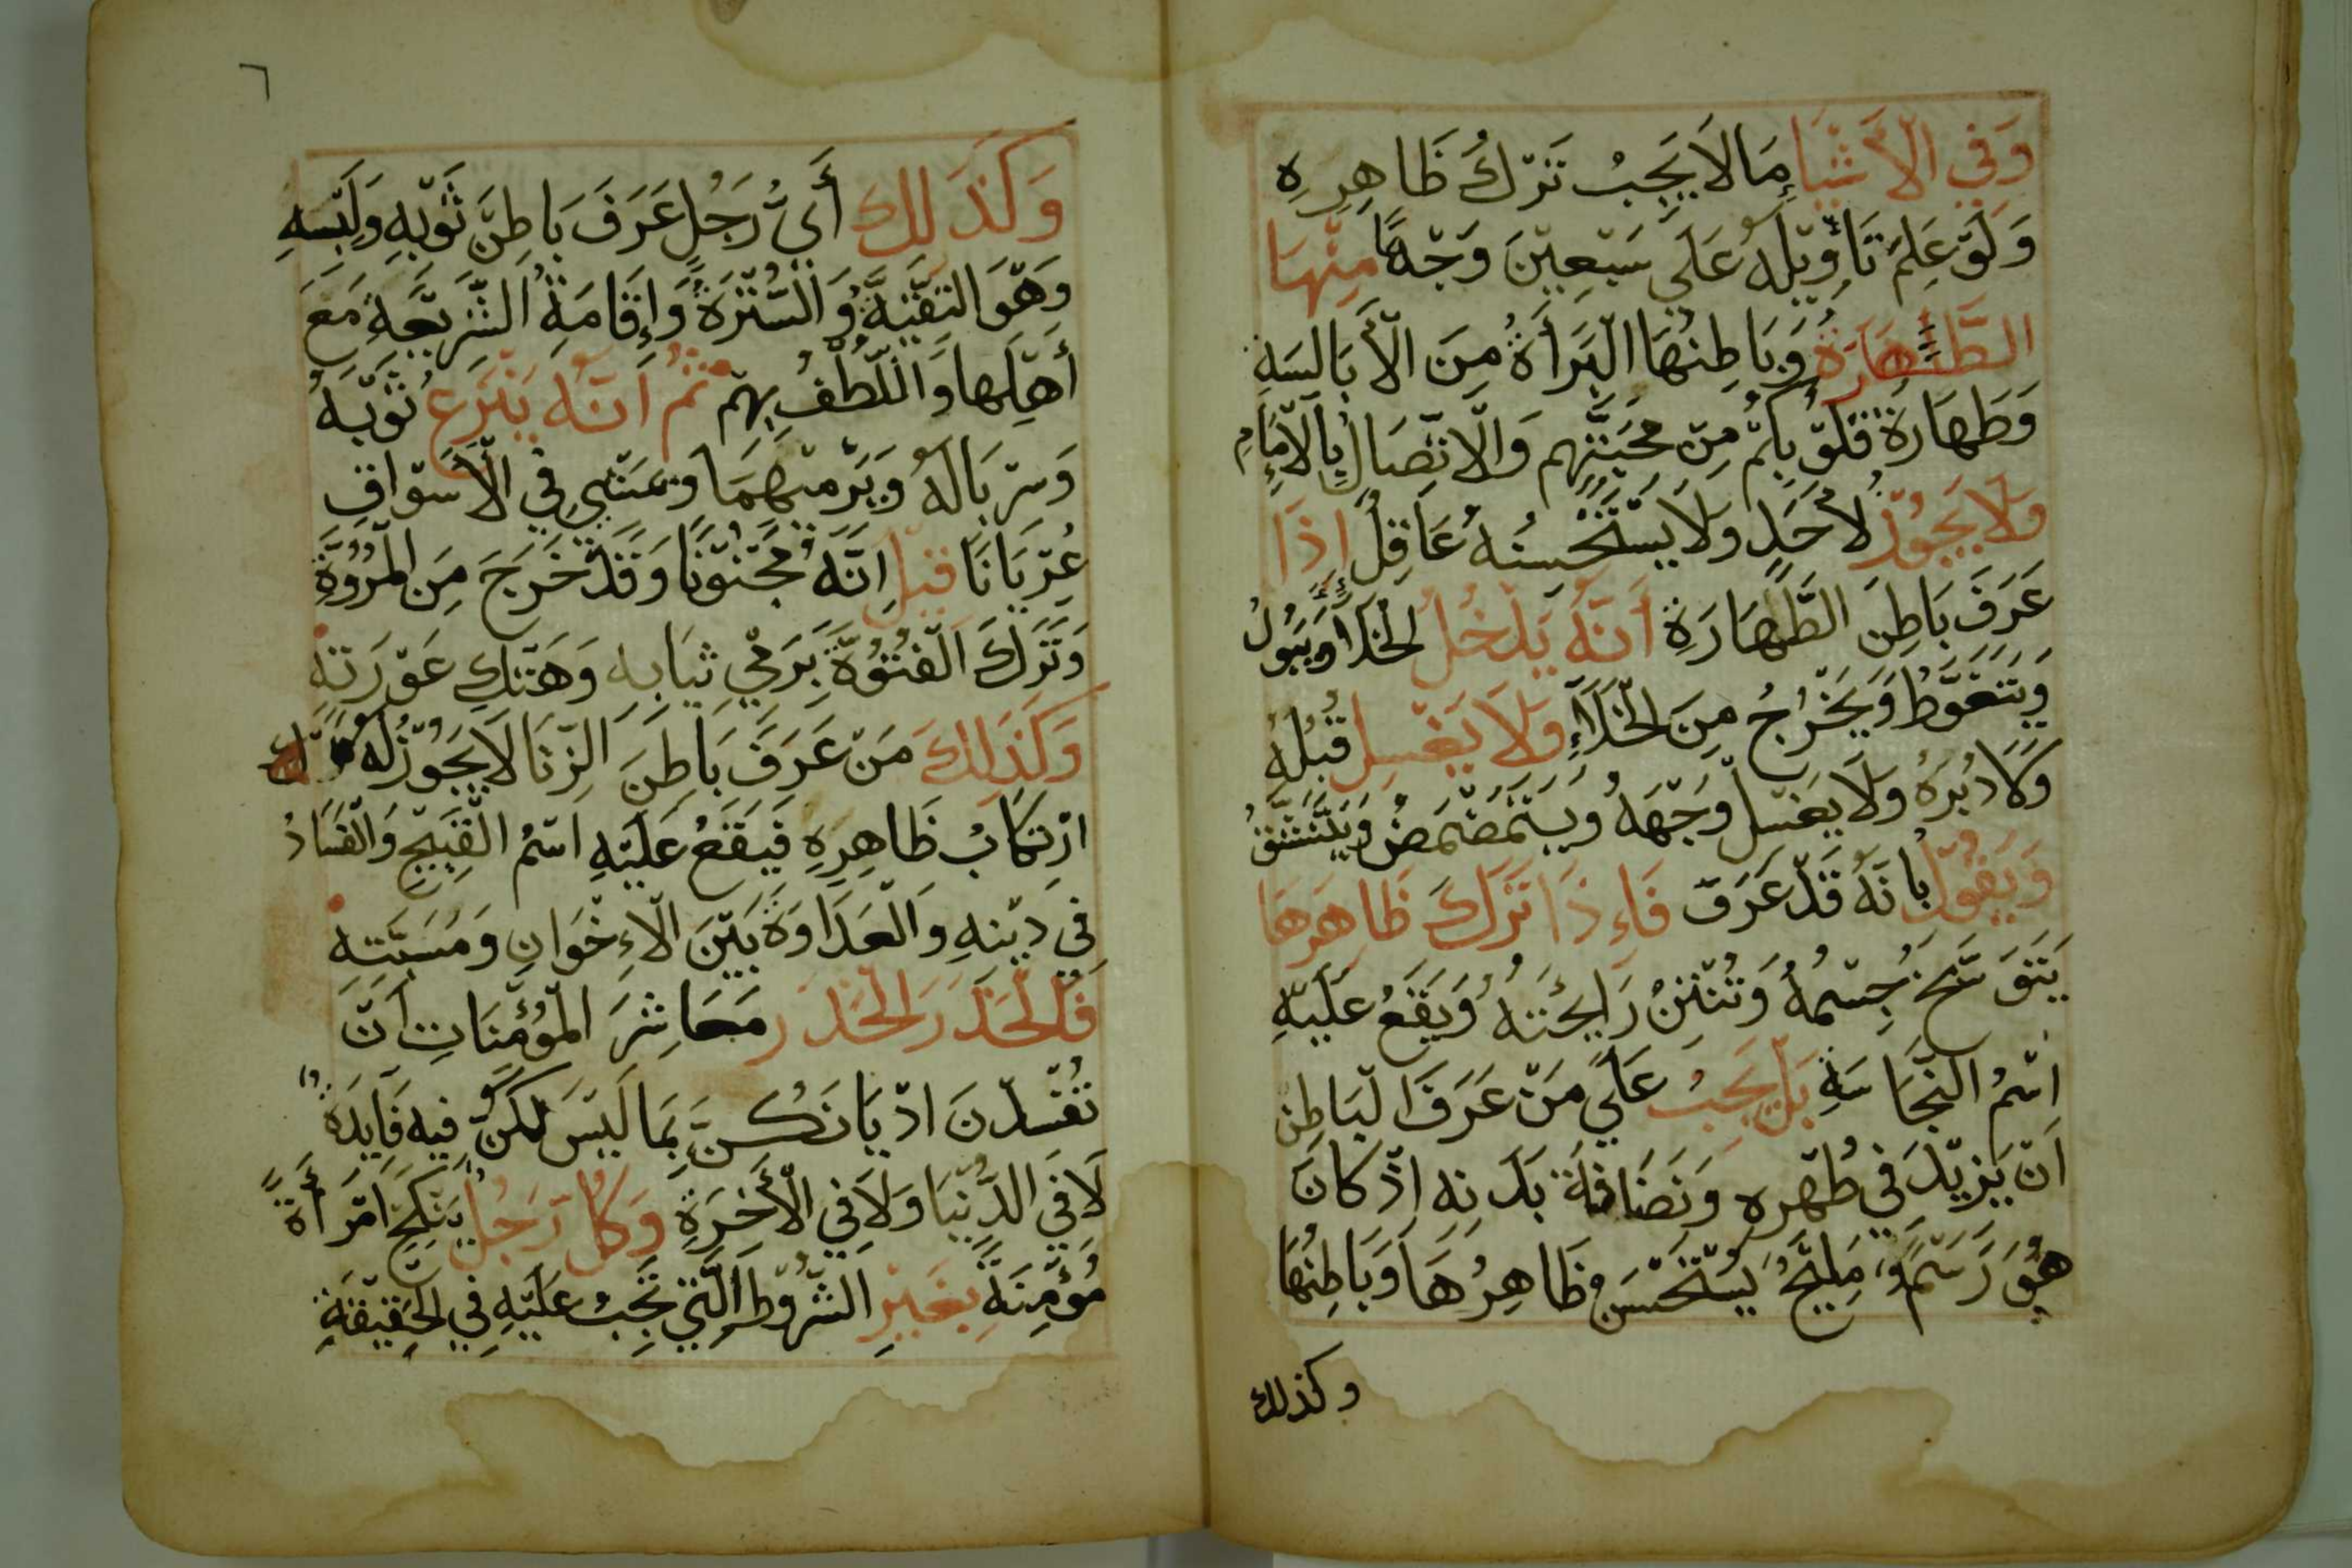 وَفِي الْأَشْيَاءِ مَا لَا يَجِبُ تَرْكُ ظَاهِرِهِ
وَلَوْ عَلِمَ تَأْوِيْلَهُ عَلَى سَبْعِيْنَ وَجْهًا مِنْهَا
الطَّهَارَةُ وَبَاطِنُهَا الْبَرَأَةُ مِنَ الْأَبَالِسَةِ
وَطَهَارَةُ قُلُوْبِكُمْ مِنْ مَحَبَّتِهِم وَالْاتِّصَالُ بِالْأِمَامِ
وَلَا يَجُوْزُ لِأَحَدٍ وَلَا يَسْتَحْسِنُهُ عَاقِلٌ إِذَا
عَرَفَ بَاطِنَ الطَّهَارَةِ أَنَّهُ يَدْخُلُ الْخَلَآءَ وَيَبُوْلُ
وَيَتَغَوَّطُ وَيَخْرُجُ مِنَ الْخَلَآءِ وَلَا يَغْسِل قُبُلَهُ
وَلَا دُبُرَهُ وَلَا يَغْسِلُ وَجْهَهُ وَيَسْتَمْضْمَضُ وَيَسْتَنْشِقُ
وَيَقُوْلُ بِانَهُ قَدْ عَرَفَ فَاءِذَا تَرَكَ ظَاهِرَهَا
يَتَوَسَّخَ جِسْمُهُ وَتُنْتِنُ رَايِحَتَهُ وَيَقَعُ عَلَيْهِ
اسْمُ النَّجَاسَةِ بَلْ يَجِبُ عَلَى مَنْ عَرَفَ الْبَاطِن
اَنْ يَزِيْدَ فِي طُهْرِهِ وَنَضَافَةَ بَدَنِهِ اِذْ كَانَ
هُوَ رَسْمٌ مَلِيْحٌ يُسْتَحْسَنُ ظَاهِرُهَا وَبَاطِنُهَا
وكذلك
٦
وَكَذَلِكَ أَيُّ رَجُلٍ عَرَفَ بَاطِنَ ثَوْبِهِ وَلَبْسِهِ
وَهْوَ التَقِيَّةُ وَالسُّتْرَةُ وَإِقَامَةُ الشَّرِيْعَةِ مَعَ
أَهْلِهَا وَاللُّطْفُ بِهِمْ ثُمَّ اَنَّهُ يَنْزَع ثَوْبَهُ
وَسِرْبَالَهُ وَيَرْمِيْهِمَا وَيَمْشِي فِي الْأَسْوَاقِ
عُرْيَانًا قِيْلَ اِنَّهُ مَجْنُوْنًا وَقَدْ خَرَجَ مِنَ الْمُرُوَّةِ
وَتَرَكَ الْفُتُوَّةَ بِرَمْيِ ثِيَابِهِ وَهَتْكِ عَوْرَتِهِ
وَكَذَلِكَ مَنْ عَرَفَ بَاطِنَ الزِّنَا لَا يَجُوْزُ لَهُ
ارْتِكَابُ ظَاهِرِهِ فَيَقَعُ عَلَيْهِ اسْمُ الْقَبِيْحِ وَالْفَسَادُ
فِي دِيْنِهِ وَالْعَدَاوَةَ بَيْنَ الْاءِخْوَانِ وَمُسَبَّتِهِ
فَالْحَذَرَ الْحَذَرَ مَعَاشِرَ الْمُؤْمِنَاتِ اَنْ
تُفْسِدْنَ ادْيَانَكُنَّ بِمَا لَيْسَ لَكُنَّ فِيهِ فَايِدَةٌ
لَا فِي الدُّنْيَا وَلَا فِي الْأَخِرَةِ وَكُلُّ رَجُلٍ يَنْكِحُ امْرَأَةً
مُؤْمِنَةً بِغَيْرِ الشُّرُوْطِ الَّتِي تَجِبُ عَلَيْهِ فِي الْحَقِيْقَةِ